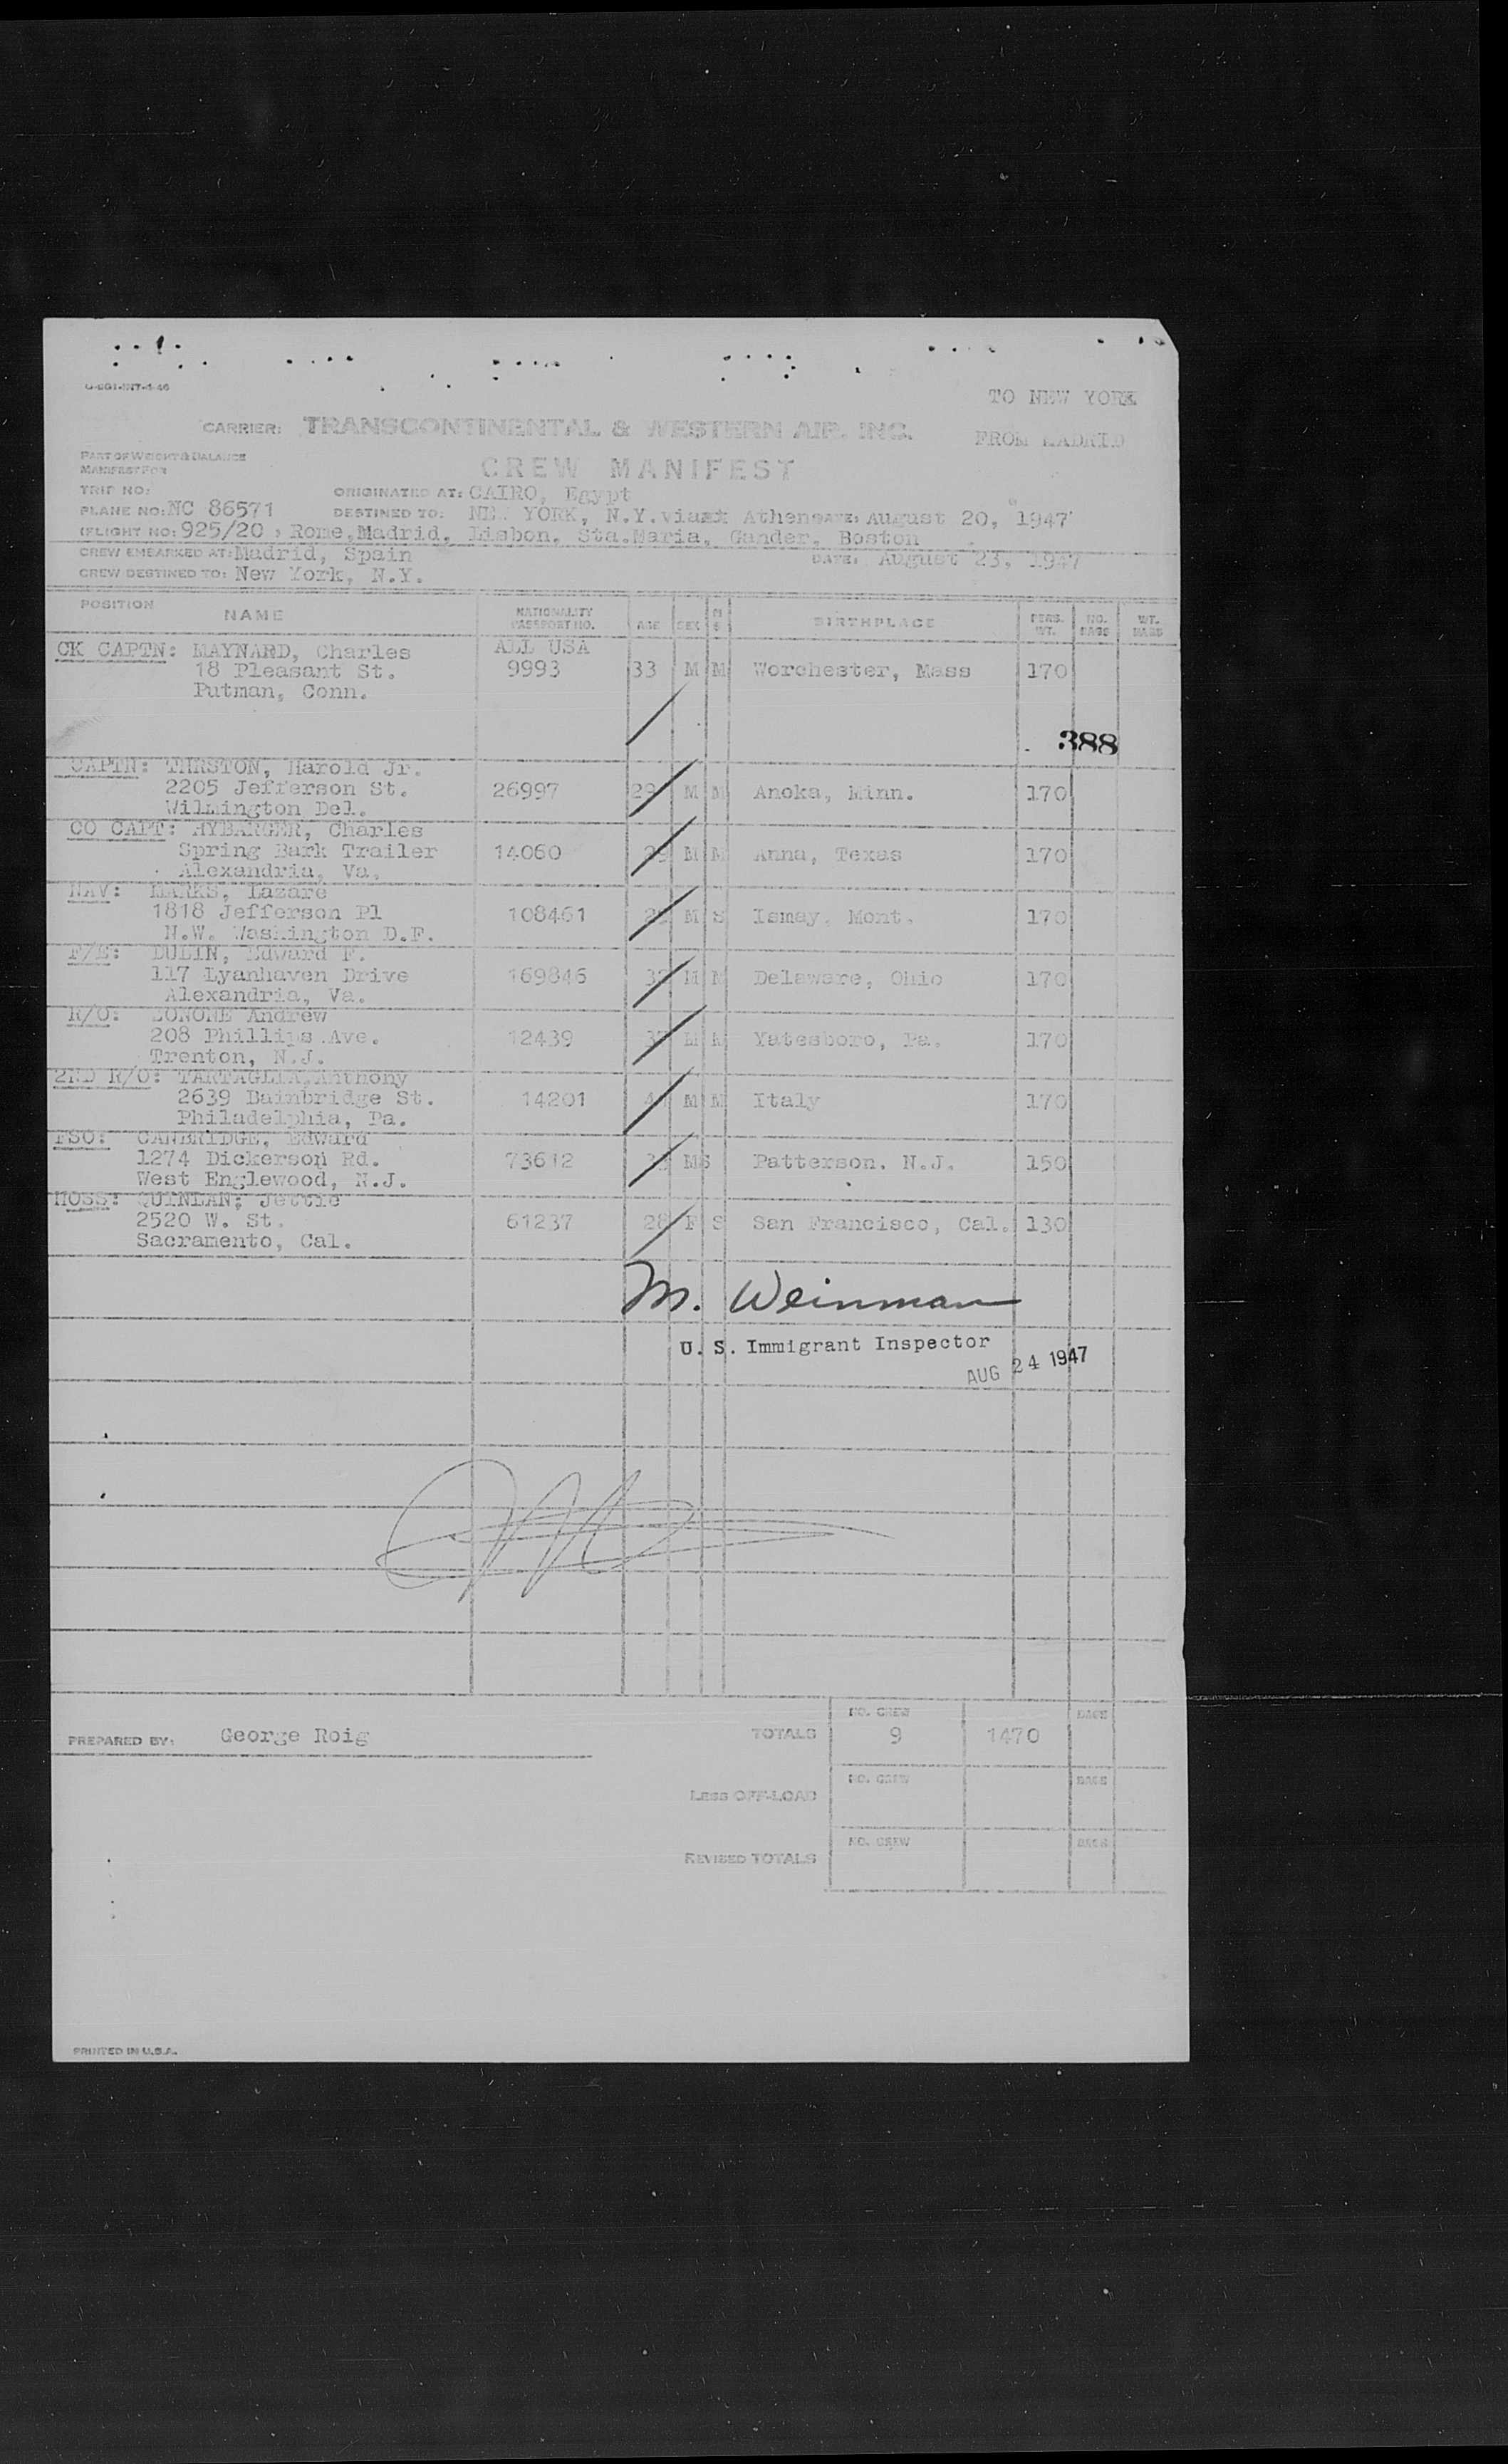 TO NEW YORK
CARRIER: TRANSCONTINENTAL & WESTERN AIR, INC.
FROM MADRID
PART OF WEIGHT & BALANCE
MANIFEST FOR
CREW MANIFEST
TRIP NO:
ORIGINATED AT: CAIRO, Egypt
PLANE NO: NC 86571 DESTINED TO: NEW YORK, N.Y. via Athens DATE: August 20, 1947
(FLIGHT NO: 925/20 , Rome, Madrid, Lisbon, Sta.Maria, Gander, Boston
CREW EMBARKED AT: Madrid, Spain DATE: August 23, 1947
CREW DESTINED TO: New York, N.Y.
POSITION NAME NATIONALITY PASSPORT NO. AGE SEX M S BIRTHPLACE PERS. WT. NO. BAGS WT. BAGS
CK CAPTN: MAYNARD, Charles ALL USA
18 Pleasant St. 9993 33 M M Worchester, Mass 170
Putman, Conn.
388
CAPTN: THRSTON, Harold Jr.
2205 Jefferson St. 26997 29 M M Anoka, Minn. 170
Wilmington Del.
CO CAPT: HYBARGER, Charles
Spring Bark Trailer 14060 29 M M Anna, Texas 170
Alexandria, Va.
NAV: MARKS, Lazare
1818 Jefferson Pl 108461 M S Ismay, Mont. 170
N.W. Washington D.F.
F/E: DULIN, Edward F.
117 Lyanhaven Drive 169846 M M Delaware, Ohio 170
Alexandria, Va.
R/O: ZONONE Andrew
208 Phillips Ave. 12439 37 M M Yatesboro, Pa. 170
Trenton, N.J.
2ND R/O: TARTAGLIA, Anthony
2639 Bainbridge St. 14201 M M Italy 170
Philadelphia, Pa.
FSO: CANBRIDGE, Edward
1274 Dickerson Rd. 73612 M S Patterson, N.J. 150
West Englewood, N.J.
HOSS: QUINLAN, Jettie
2520 W. St. 61237 28 F S San Francisco, Cal. 130
Sacramento, Cal.
M. Weinman
U. S. Immigrant Inspector
AUG 24 1947
NO. CREW BAGS
PREPARED BY: George Roig TOTALS 9 1470
NO. CREW BAGS
LESS OFF-LOAD
NO. CREW BAGS
REVISED TOTALS
PRINTED IN U.S.A.